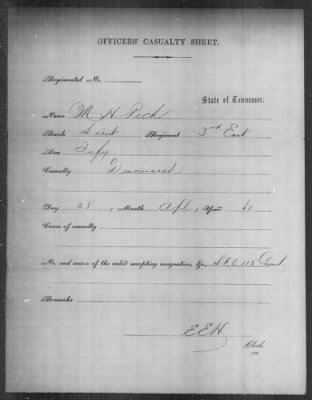 OFFICERS' CASUALTY SHEET.
Regimental No.
State of Tennessee.
Name M H Peck
Rank Lieut Regiment 3rd East
Arm Infy
Casualty Dismissed
Day 28, Month Apl, Year
Cause of casualty
No. and source of the order accepting resignation, &c.,
Remarks
E E H
Clerk.